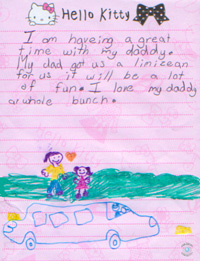 Hello Kitty
I am haveing a great
time with my daddy.
My dad got us a linicean
for us it will be a lot
of fun. I love my daddy
a whole bunch.